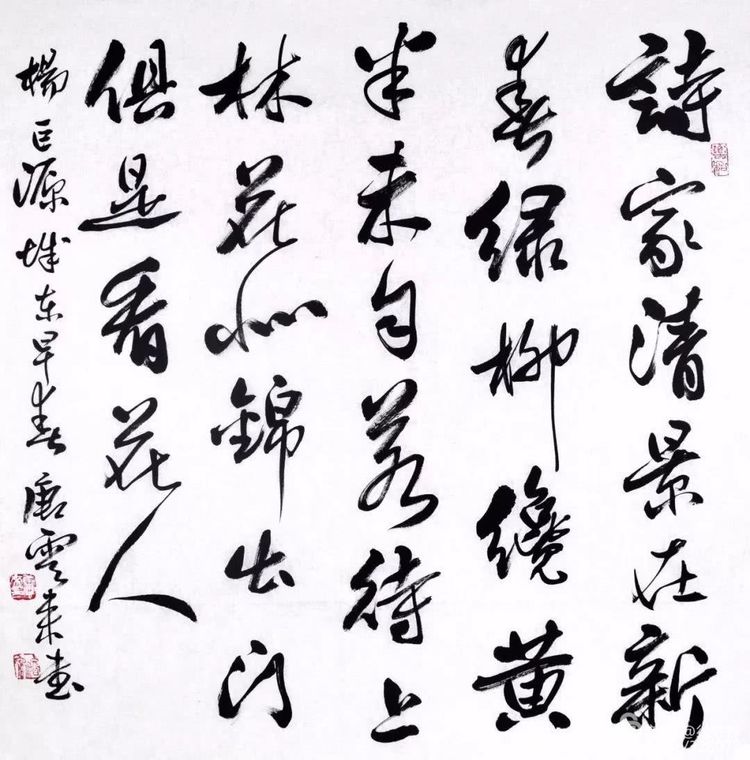 詩家清景在新
春绿柳纔黄
半未匀若待上
林花似錦出门
俱是看花人
楊巨源城东早春 唐雲来書